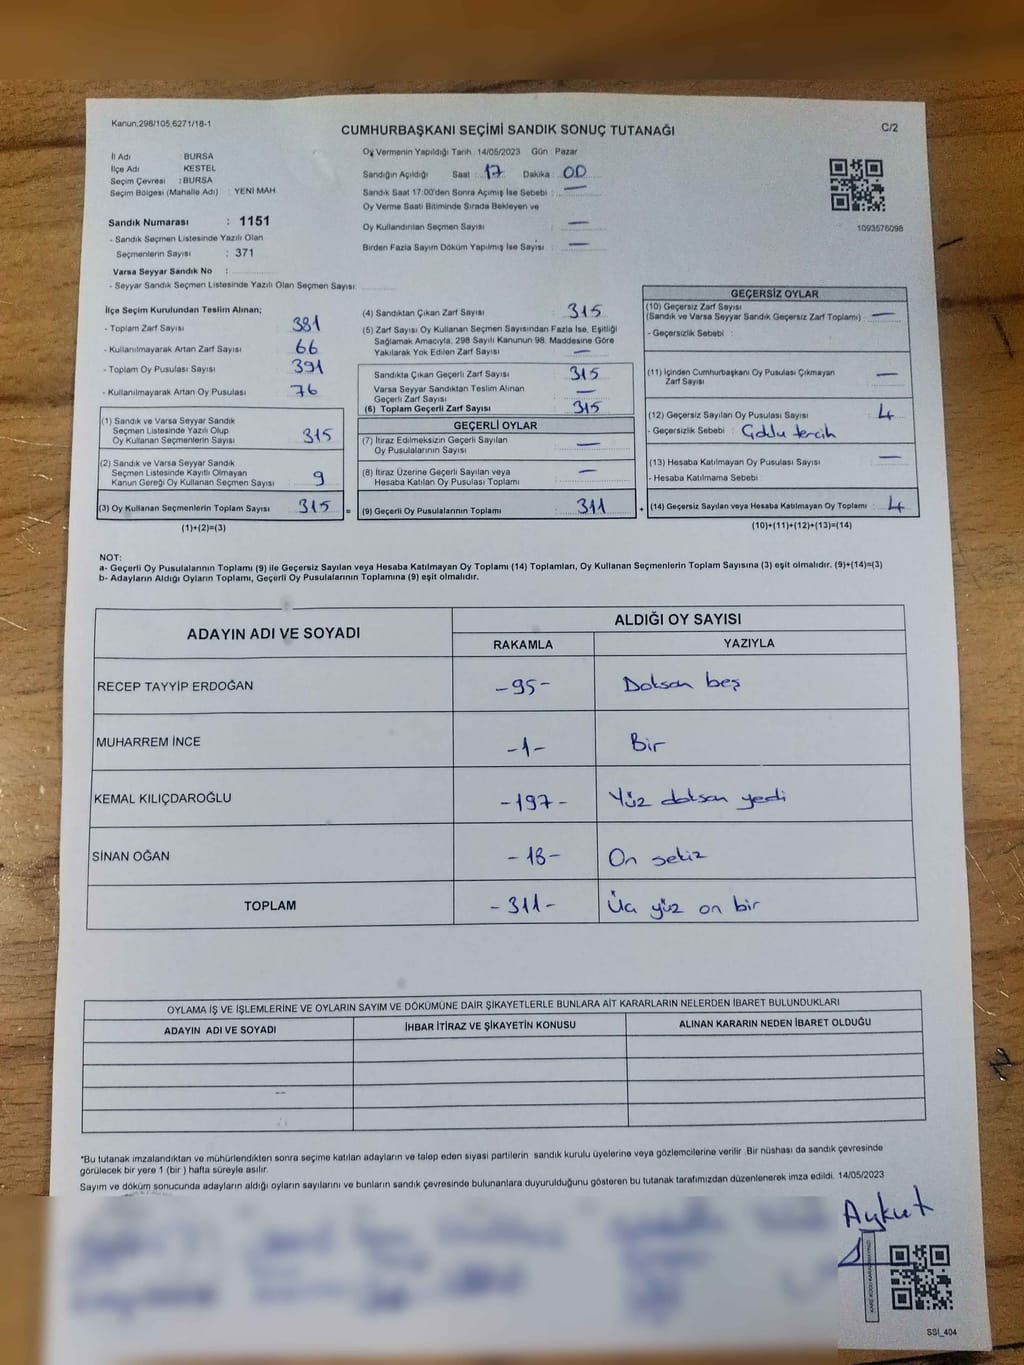 Kanun:298/105,6271/18-1
CUMHURBAŞKANI SEÇİMİ SANDIK SONUÇ TUTANAĞI
C/2
İl Adı BURSA
İlçe Adı KESTEL
Seçim Çevresi : BURSA
Seçim Bölgesi (Mahalle Adı) : YENİ MAH
Oy Vermenin Yapıldığı Tarih :14/05/2023 Gün : Pazar
Sandığın Açıldığı Saat : 17 Dakika : 00
Sandık Saat 17:00'den Sonra Açılmış İse Sebebi : —
Oy Verme Saati Bitiminde Sırada Bekleyen ve
Oy Kullandırılan Seçmen Sayısı —
Birden Fazla Sayım Döküm Yapılmış İse Sayısı : —
1093576098
Sandık Numarası : 1151
- Sandık Seçmen Listesinde Yazılı Olan
Seçmenlerin Sayısı : 371
Varsa Seyyar Sandık No :
- Seyyar Sandık Seçmen Listesinde Yazılı Olan Seçmen Sayısı:
İlçe Seçim Kurulundan Teslim Alınan;
- Toplam Zarf Sayısı 381
- Kullanılmayarak Artan Zarf Sayısı 66
- Toplam Oy Pusulası Sayısı 391
- Kullanılmayarak Artan Oy Pusulası 76
(1) Sandık ve Varsa Seyyar Sandık
Seçmen Listesinde Yazılı Olup
Oy Kullanan Seçmenlerin Sayısı 315
(2) Sandık ve Varsa Seyyar Sandık
Seçmen Listesinde Kayıtlı Olmayan
Kanun Gereği Oy Kullanan Seçmen Sayısı 9
(3) Oy Kullanan Seçmenlerin Toplam Sayısı 315 =
(1)+(2)=(3)
(4) Sandıktan Çıkan Zarf Sayısı 315
(5) Zarf Sayısı Oy Kullanan Seçmen Sayısından Fazla İse, Eşitliği
Sağlamak Amacıyla, 298 Sayılı Kanunun 98. Maddesine Göre
Yakılarak Yok Edilen Zarf Sayısı —
Sandıkta Çıkan Geçerli Zarf Sayısı 315
Varsa Seyyar Sandıktan Teslim Alınan
Geçerli Zarf Sayısı —
(6) Toplam Geçerli Zarf Sayısı 315
GEÇERLİ OYLAR
(7) İtiraz Edilmeksizin Geçerli Sayılan
Oy Pusulalarının Sayısı —
(8) İtiraz Üzerine Geçerli Sayılan veya
Hesaba Katılan Oy Pusulası Toplamı —
(9) Geçerli Oy Pusulalarının Toplamı 311 +
GEÇERSİZ OYLAR
(10) Geçersiz Zarf Sayısı
(Sandık ve Varsa Seyyar Sandık Geçersiz Zarf Toplamı) : —
- Geçersizlik Sebebi :
(11) İçinden Cumhurbaşkanı Oy Pusulası Çıkmayan
Zarf Sayısı —
(12) Geçersiz Sayılan Oy Pusulası Sayısı 4
- Geçersizlik Sebebi : Çoklu tercih
(13) Hesaba Katılmayan Oy Pusulası Sayısı —
- Hesaba Katılmama Sebebi
(14) Geçersiz Sayılan veya Hesaba Katılmayan Oy Toplamı : 4
(10)+(11)+(12)+(13)=(14)
NOT:
a- Geçerli Oy Pusulalarının Toplamı (9) ile Geçersiz Sayılan veya Hesaba Katılmayan Oy Toplamı (14) Toplamları, Oy Kullanan Seçmenlerin Toplam Sayısına (3) eşit olmalıdır. (9)+(14)=(3)
b- Adayların Aldığı Oyların Toplamı, Geçerli Oy Pusulalarının Toplamına (9) eşit olmalıdır.
ADAYIN ADI VE SOYADI
ALDIĞI OY SAYISI
RAKAMLA YAZIYLA
RECEP TAYYİP ERDOĞAN -95- Doksan beş
MUHARREM İNCE -1- Bir
KEMAL KILIÇDAROĞLU -197- Yüz doksan yedi
SİNAN OĞAN -18- On sekiz
TOPLAM -311- Üç yüz on bir
OYLAMA İŞ VE İŞLEMLERİNE VE OYLARIN SAYIM VE DÖKÜMÜNE DAİR ŞİKAYETLERLE BUNLARA AİT KARARLARIN NELERDEN İBARET BULUNDUKLARI
ADAYIN ADI VE SOYADI İHBAR İTİRAZ VE ŞİKAYETİN KONUSU ALINAN KARARIN NEDEN İBARET OLDUĞU
*Bu tutanak imzalandıktan ve mühürlendikten sonra seçime katılan adayların ve talep eden siyasi partilerin sandık kurulu üyelerine veya gözlemcilerine verilir. Bir nüshası da sandık çevresinde
görülecek bir yere 1 (bir ) hafta süreyle asılır.
Sayım ve döküm sonucunda adayların aldığı oyların sayılarını ve bunların sandık çevresinde bulunanlara duyurulduğunu gösteren bu tutanak tarafımızdan düzenlenerek imza edildi. 14/05/2023
Aykut
SSİ_404